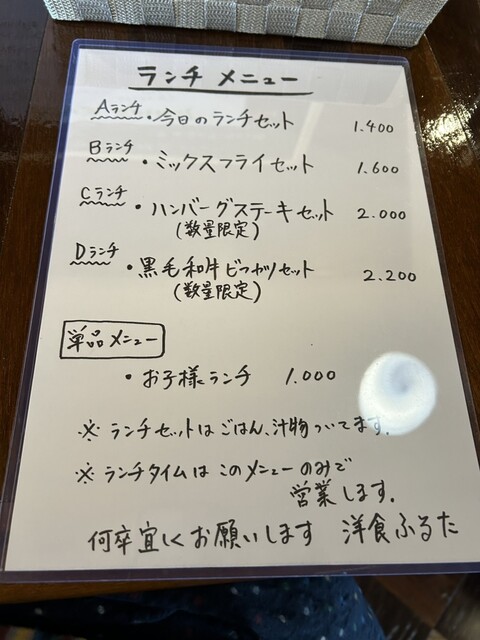 ランチ メニュー
Aランチ ・今日のランチセット 1.400
Bランチ ・ミックスフライセット 1.600
Cランチ ・ハンバーグステーキセット 2.000
(数量限定)
Dランチ ・黒毛和牛ビフカツセット 2.200
(数量限定)
単品メニュー
・お子様ランチ 1.000
※ ランチセットはごはん、汁物ついてます。
※ ランチタイムはこのメニューのみで
営業します。
何卒宜しくお願いします 洋食ふるた